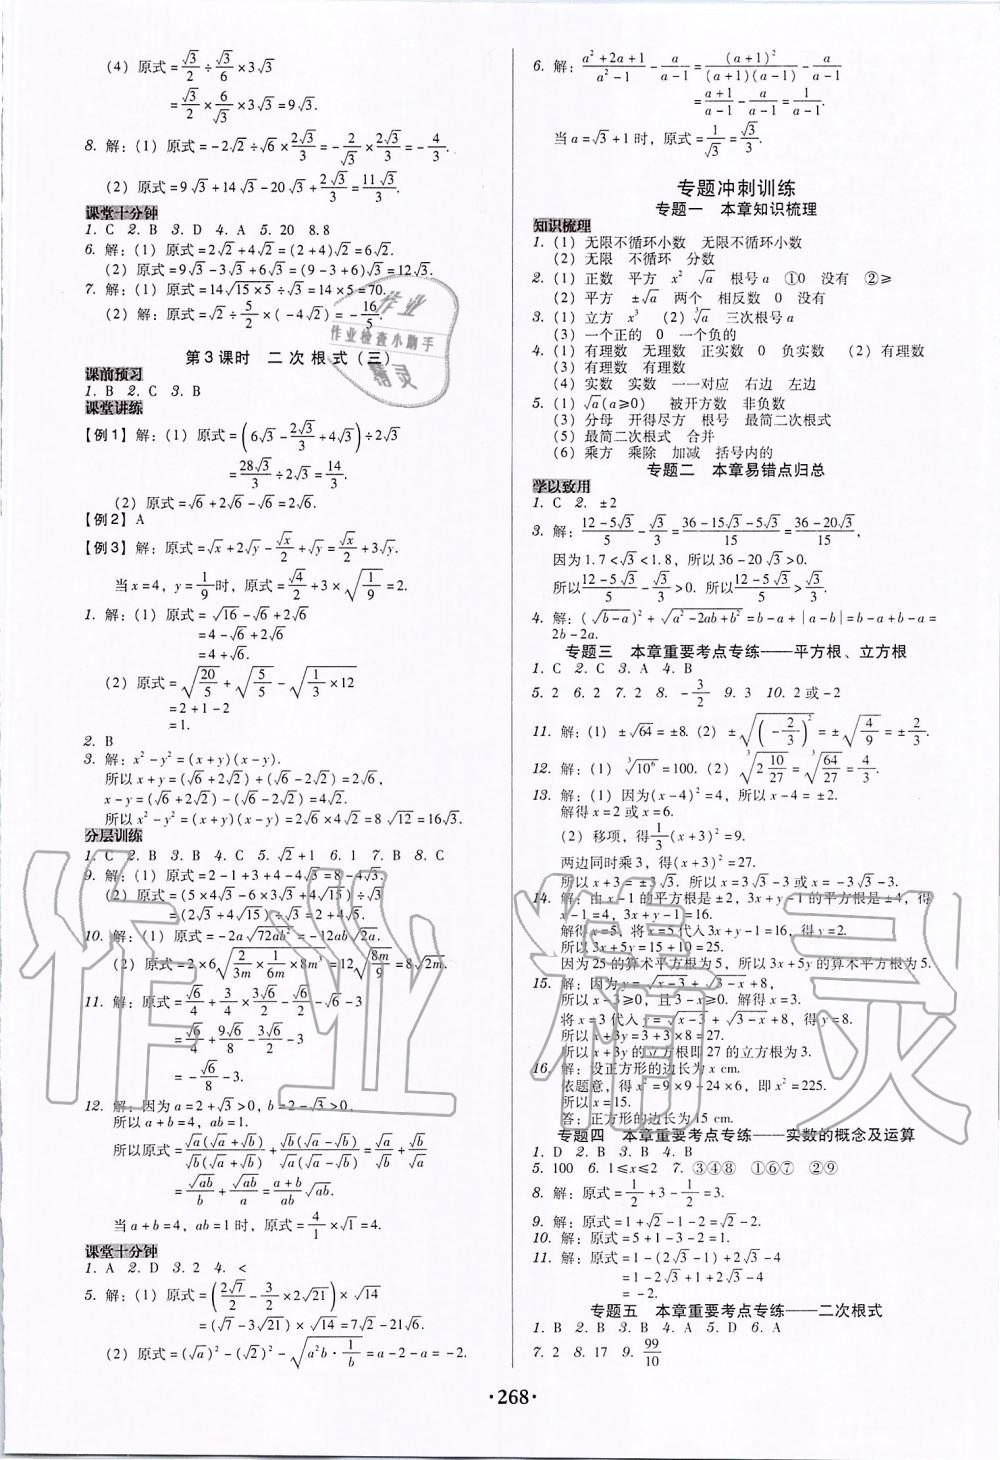 (4) 原式=√3/2÷√3/6×3√3
=√3/2×6/√3×3√3=9√3.
8. 解:(1) 原式=-2√2÷√6×2√3/3=-2/√3×2√3/3=-4/3.
(2) 原式=9√3+14√3-20√3+2√3/3=11√3/3.
课堂十分钟
1. C 2. B 3. D 4. A 5. 20 8.8
6. 解:(1) 原式=2√2+4√2=(2+4)√2=6√2.
(2) 原式=9√3-3√3+6√3=(9-3+6)√3=12√3.
7. 解:(1) 原式=14√(15×5)÷√3=14×5=70.
(2) 解:原式=√2÷5/2×(-4√2)=-16/5.
第3课时 二次根式(三)
课前预习
1. B 2. C 3. B
课堂讲练
【例1】解:(1) 原式=(6√3-2√3/3+4√3)÷2√3
=28√3/3÷2√3=14/3.
(2) 原式=√6+2√6-√6=2√6.
【例2】A
【例3】解:原式=√x+2√y-√x/2+√y=√x/2+3√y.
当x=4, y=1/9时,原式=√4/2+3×√(1/9)=2.
1. 解:(1) 原式=√16-√6+2√6
=4-√6+2√6
=4+√6.
(2) 原式=√(20/5)+√(5/5)-√(1/3×12)
=2+1-2
=1.
2. B
3. 解:x²-y²=(x+y)(x-y).
所以x+y=(√6+2√2)+(√6-2√2)=2√6,
x-y=(√6+2√2)-(√6-2√2)=4√2.
所以x²-y²=(x+y)(x-y)=2√6×4√2=8√12=16√3.
分层训练
1. C 2. B 3. B 4. C 5. √2+1 6. 1 7. B 8. C
9. 解:(1) 原式=2-1+3+4-4√3=8-4√3.
(2) 原式=(5×4√3-6×3√3+4√15)÷√3
=(2√3+4√15)÷√3=2+4√5.
10. 解:(1) 原式=-2a√(72ab²)=-12ab√(2a).
(2) 原式=2×6√(2/3m×1/6m×8m³)=12√(8m/9)=8√(2m).
11. 解:原式=√6/4+3/4×3√6/2-√6/2-√6-3
=√6/4+9√6/8-3√6/2-3
=-√6/8-3.
12. 解:因为a=2+√3>0, b=2-√3>0,
所以a+b=4, ab=1.
所以原式=√a(√a+√b)/√b(√a+√b)+√b(√a+√b)/√a(√a+√b)=√a/√b+√b/√a
=√ab/b+√ab/a=(a+b)/ab √ab.
当a+b=4, ab=1时,原式=4/1×√1=4.
课堂十分钟
1. A 2. D 3. 2 4. <
5. 解:(1) 原式=(2√7/2-3/2×2√21)×√14
=(√7-3√21)×√14=7√2-21√6.
(2) 原式=(√a)²-(√2)²-√(a²b·1/b)=a-2-a=-2.
6. 解:(a²+2a+1)/(a²-1)-a/(a-1)=(a+1)²/(a+1)(a-1)-a/(a-1)
=(a+1)/(a-1)-a/(a-1)=1/(a-1).
当a=√3+1时,原式=1/√3=√3/3.
专题冲刺训练
专题一 本章知识梳理
知识梳理
1. (1) 无限不循环小数 无限不循环小数
(2) 无限 不循环 分数
2. (1) 正数 平方 x² √a 根号a ①0 没有 ②≥
(2) 平方 ±√a 两个 相反数 0 没有
3. (1) 立方 x³ (2) ³√a 三次根号a
(3) 一个正的 0 一个负的
4. (1) 有理数 无理数 正实数 0 负实数 (2) 有理数
(3) 有理数 有理数
(4) 实数 实数 一一对应 右边 左边
5. (1) √a(a≥0) 被开方数 非负数
(3) 分母 开得尽方 根号 最简二次根式
(5) 最简二次根式 合并
(6) 乘方 乘除 加减 括号内的
专题二 本章易错点归总
学以致用
1. C 2. ±2
3. 解:(12-5√3)/5-√3/3=(36-15√3-5√3)/15=(36-20√3)/15,
因为1.7<√3<1.8, 所以36-20√3>0.
所以(12-5√3)/5-√3/3>0. 所以(12-5√3)/5>√3/3.
4. 解:(√(b-a))²+√(a²-2ab+b²)=b-a+|a-b|=b-a+b-a=
2b-2a.
专题三 本章重要考点专练——平方根、立方根
1. C 2. C 3. A 4. B
5. 2 6. 2 7. 2 8. -3/2 9. 3 10. 2或-2
11. 解:(1) ±√64=±8. (2) ±√((-2/3)²)=±√(4/9)=±2/3.
12. 解:(1) ³√10⁶=100. (2) ³√(2 10/27)=³√(64/27)=4/3.
13. 解:(1) 因为(x-4)²=4, 所以x-4=±2.
解得x=2或x=6.
(2) 移项,得1/3(x+3)²=9.
两边同时乘3, 得(x+3)²=27.
所以x+3=±3√3. 所以x=3√3-3或x=-3√3-3.
14. 解:由x-1的平方根是±2, 3x+y-1的平方根是±4, 得
x-1=4, 3x+y-1=16.
解得x=5, 将x=5代入3x+y-1=16, 得y=2.
所以3x+5y=15+10=25.
因为25的算术平方根为5, 所以3x+5y的算术平方根为5.
15. 解:因为y=√(x-3)+√(3-x)+8,
所以x-3≥0, 且3-x≥0. 解得x=3.
将x=3代入y=√(x-3)+√(3-x)+8, 得y=8.
所以x+3y=3+3×8=27.
所以x+3y的立方根即27的立方根为3.
16. 解:设正方形的边长为x cm.
依题意,得x²=9×9-24×6, 即x²=225.
所以x=15.
答:正方形的边长为15 cm.
专题四 本章重要考点专练——实数的概念及运算
1. D 2. B 3. B 4. B
5. 100 6. 1≤x≤2 7. ③④⑧ ①⑥⑦ ②⑨
8. 解:原式=1/2+3-1/2=3.
9. 解:原式=1+√2-1-2=√2-2.
10. 解:原式=5+1-3-2=1.
11. 解:原式=1-(2√3-1)+2√3-4
=1-2√3+1+2√3-4
=-2.
专题五 本章重要考点专练——二次根式
1. B 2. B 3. B 4. A 5. D 6. A
7. 2 8. 17 9. 99/10
·268·
作业
作业检查小助手
精灵
作业精灵